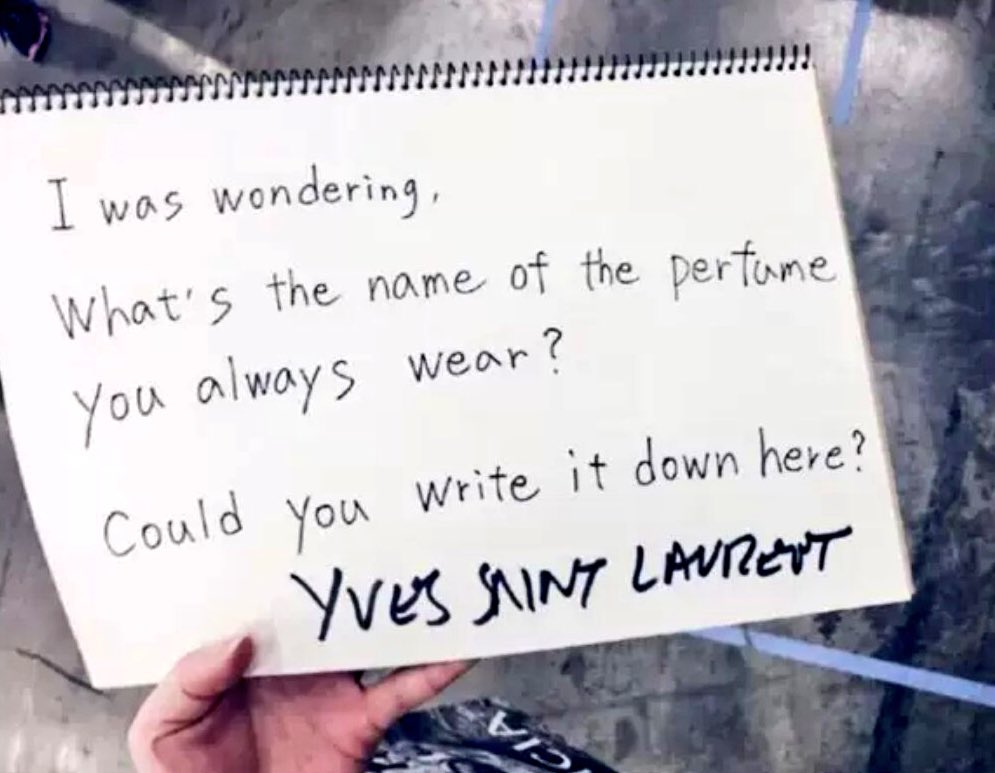 I was wondering,
What's the name of the perfume
you always wear?
Could you write it down here?
YVES SAINT LAURENT
CIA